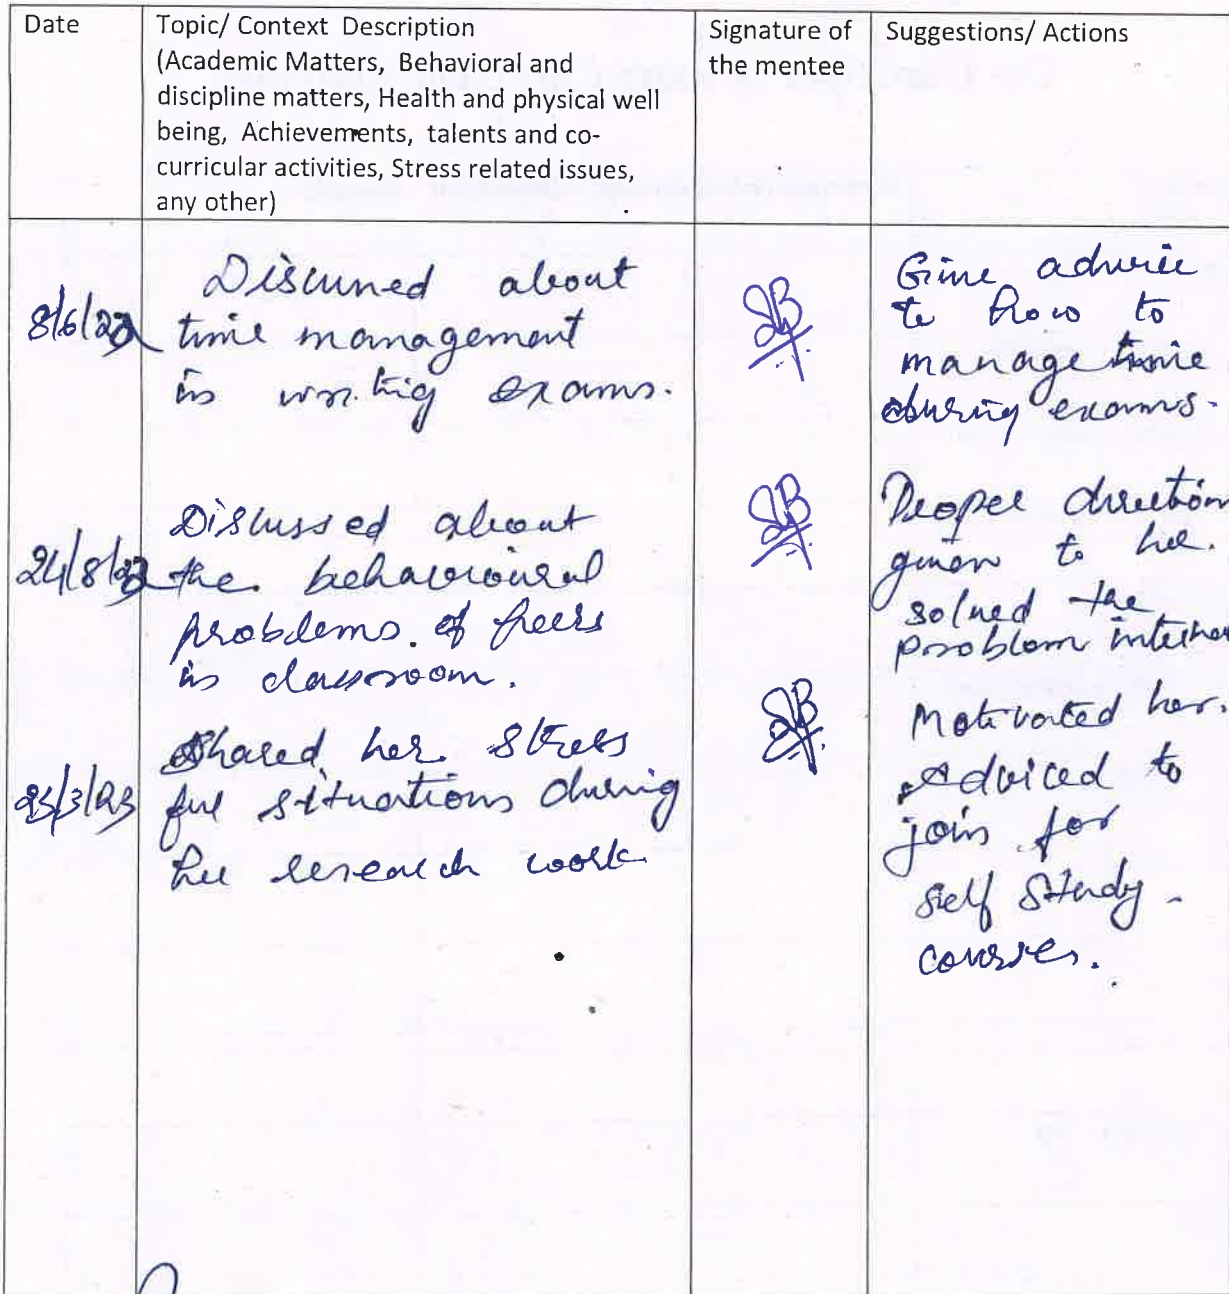 Date
Topic/ Context Description
(Academic Matters, Behavioral and
discipline matters, Health and physical well
being, Achievements, talents and co-
curricular activities, Stress related issues,
any other)
Signature of
the mentee
Suggestions/ Actions
8/6/22
Discussed about
time management
in writing exams.
Give advice
to how to
manage time
during exams.
24/8/22
Discussed about
the behavioural
problems of peers
in classroom.
Proper direction
given to her.
solved the
problem
23/3/23
Shared her stress
ful situations during
her research work
Motivated her.
Adviced to
join for
self study
courses.